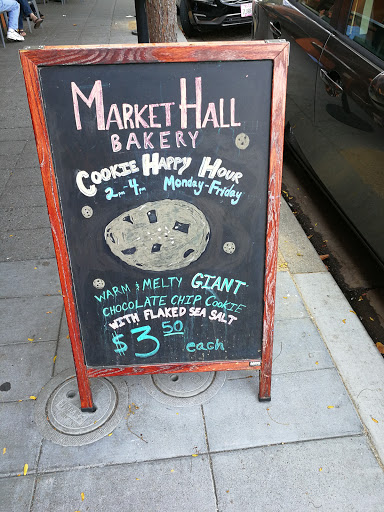 MARKET HALL
BAKERY
COOKIE HAPPY HOUR
2pm-4pm Monday-Friday
WARM & MELTY GIANT
CHOCOLATE CHIP COOKIE
WITH FLAKED SEA SALT
$3.50 each